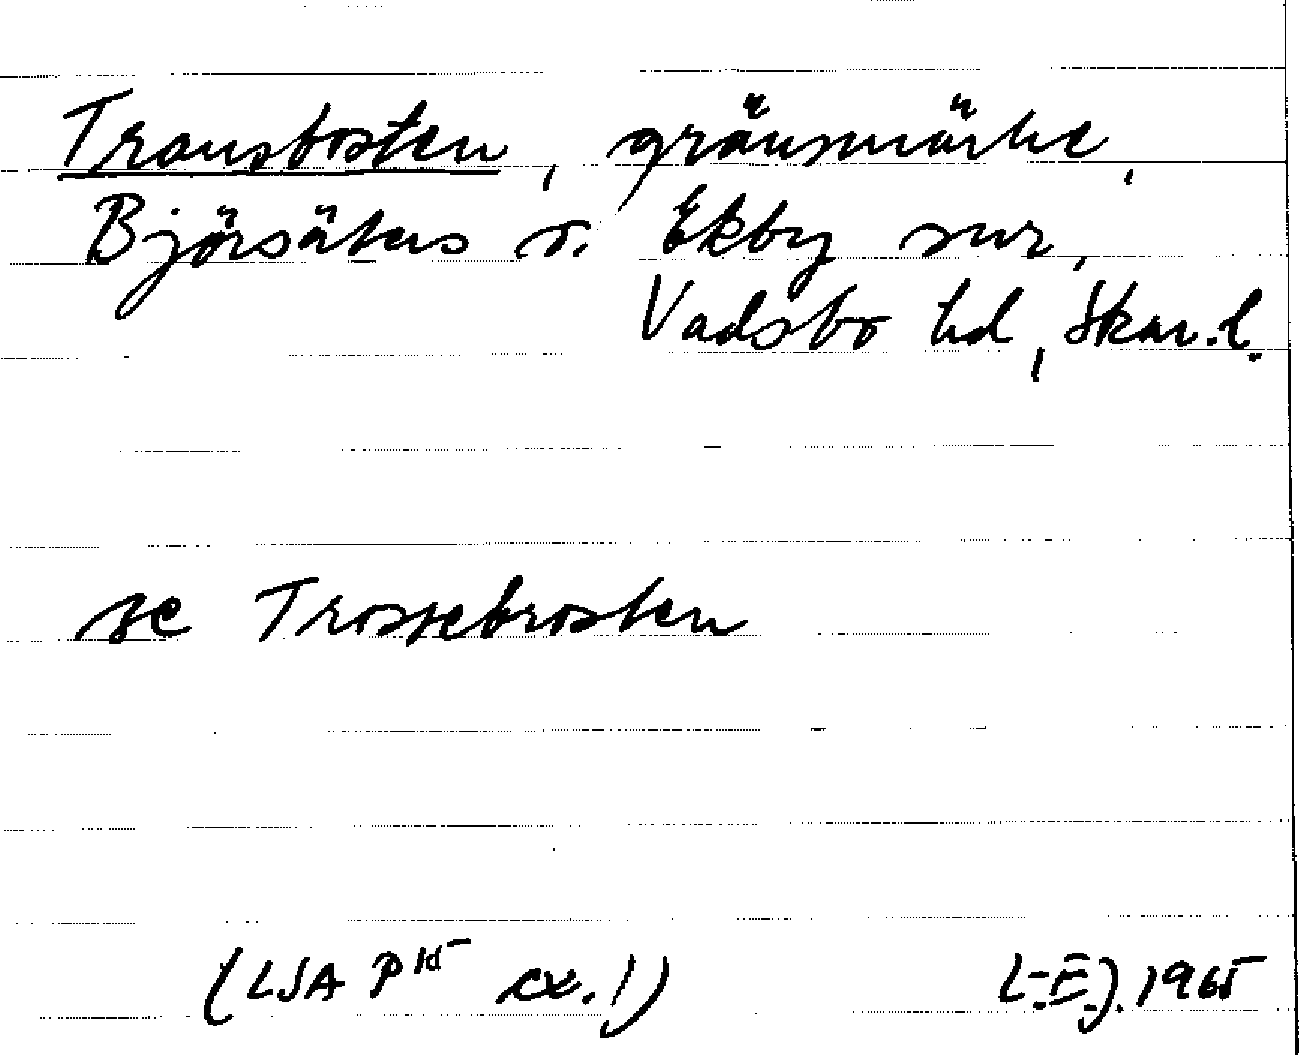 Transbosten, gränsmärke,
Björsäters o. Ekby snr,
Vadsbo hd, Skar.l.
se Trossebrosten
(LSA P ex.!)
1965